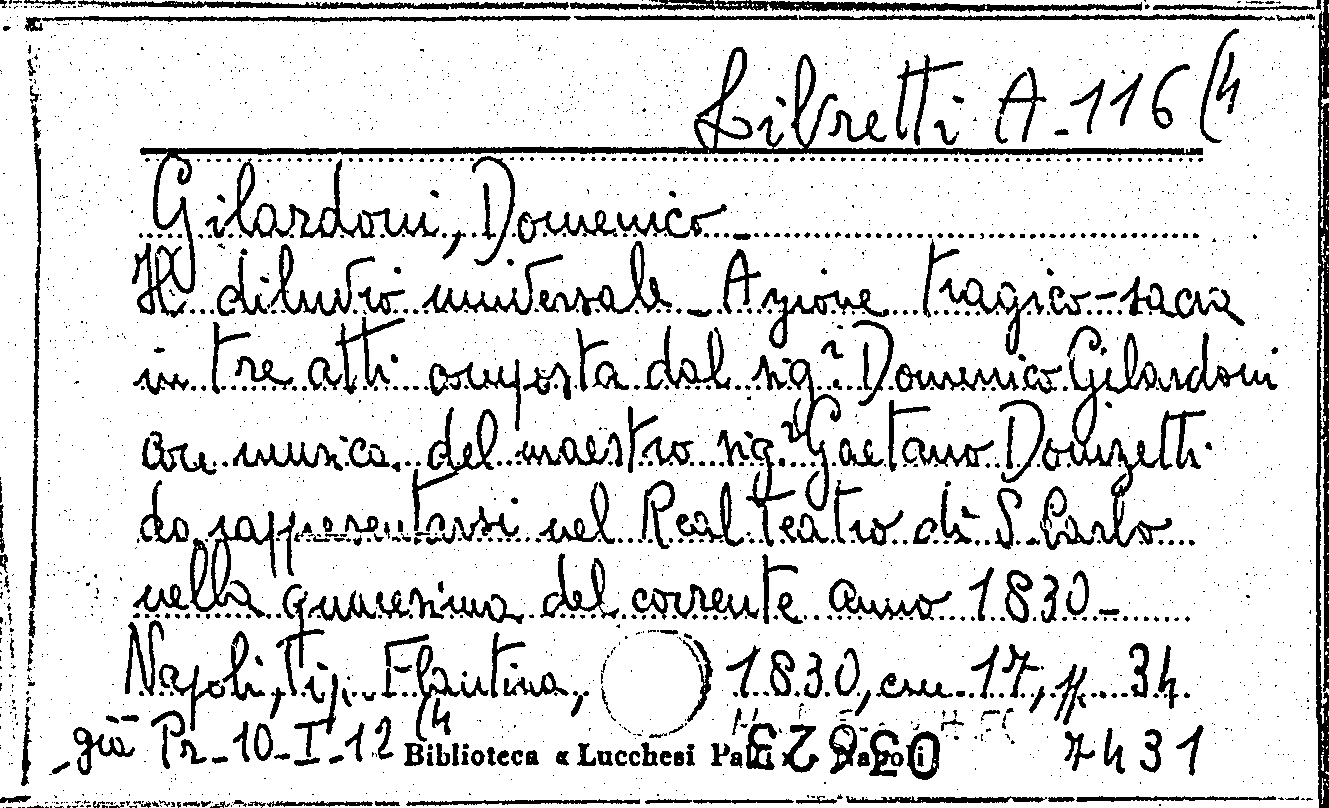 Libretti A-116(4
Gilardoni, Domenico -
Il diluvio universale - Azione tragico-sacra
in tre atti composta dal sig.r Domenico Gilardoni
con musica del maestro sig.r Gaetano Donizetti
da rappresentarsi nel Real teatro di S. Carlo
nella quaresima del corrente anno 1830 -
Napoli, Tip. Flautina, 1830, cm. 17, pp. 34
già Pr - 10 - I - 12 (4
Biblioteca « Lucchesi Palli » Napoli
03623
7431